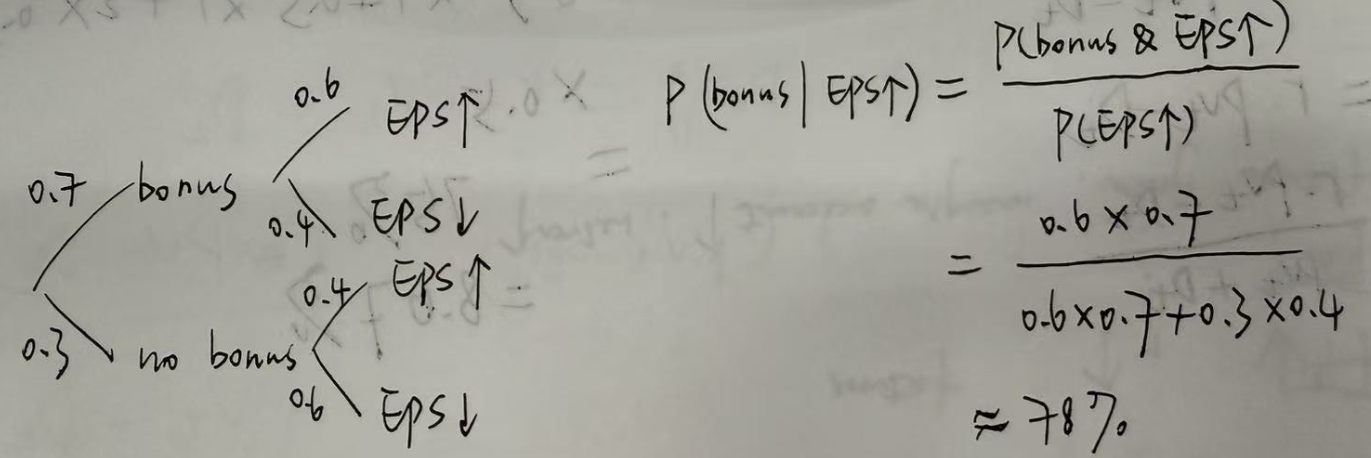 0.6 EPS↑
0.7 bonus
0.4 EPS↓
0.4 EPS↑
0.3 no bonus
0.6 EPS↓
P(bonus | EPS↑) = P(bonus & EPS↑) / P(EPS↑)
= 0.6 × 0.7 / 0.6×0.7+0.3×0.4
≈ 78%